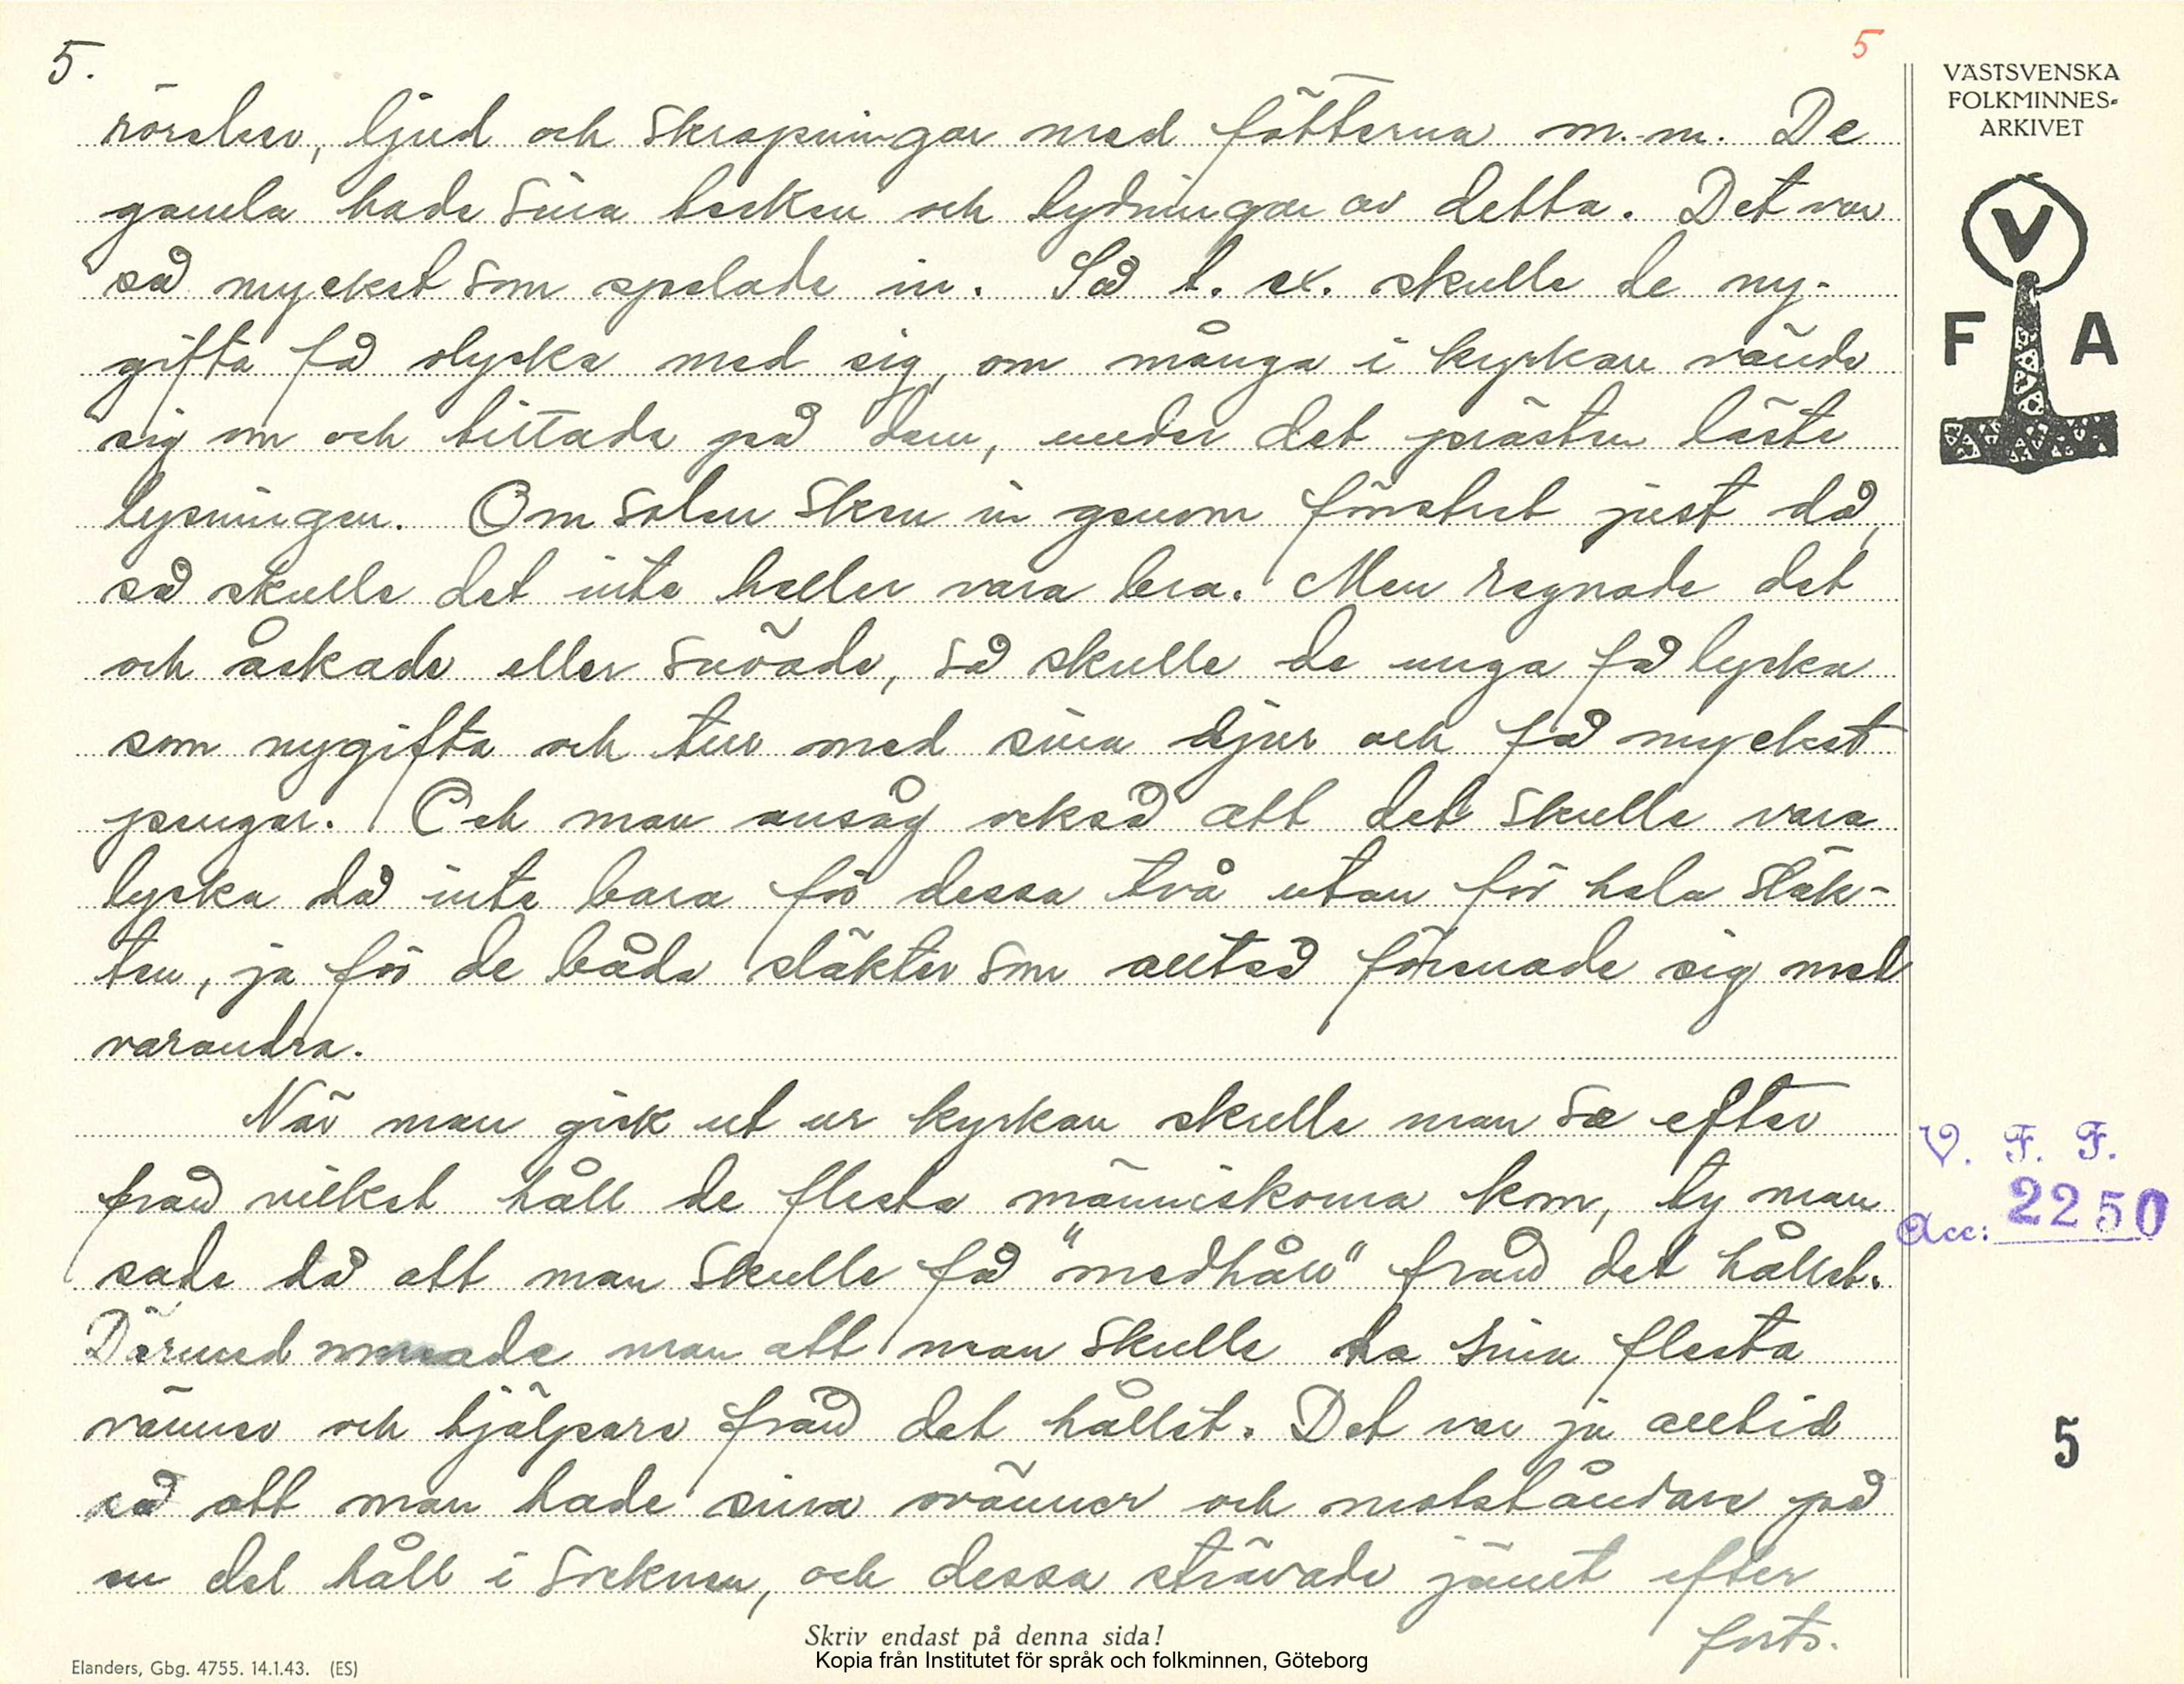 5.
5
rörelser, ljud och skrapningar med fötterna m.m. De
gamla hade sina tecken och tydningar av detta. Det var
så mycket som spelade in. Så t. ex. skulle de ny-
gifta få olycka med sig, om många i kyrkan vände
sig om och tittade på dem, under det prästen läste
lysningen. Om solen sken in genom fönstret just då,
så skulle det inte heller vara bra. Men regnade det
och åskade eller snöade, så skulle de unga få lycka
som nygifta och tur med sina djur och få mycket
pengar. Och man ansåg också att det skulle vara
lycka då inte bara för dessa två utan för hela släk-
ten, ja för de båda släkter som alltså förenade sig med
varandra.
När man gick ut ur kyrkan skulle man se efter
från vilket håll de flesta människorna kom, ty man
sade då att man skulle få "medhåll" från det hållet.
Därmed menade man att man skulle ha sina flesta
vänner och hjälpare från det hållet. Det var ju alltid
så att man hade sina ovänner och motståndare på
en del håll i socknen, och dessa strävade jämt efter
forts.
Skriv endast på denna sida!
Kopia från Institutet för språk och folkminnen, Göteborg
Elanders, Gbg. 4755. 14.1.43. (ES)
VÄSTSVENSKA
FOLKMINNES-
ARKIVET
V
F A
V. F. F.
Acc: 2250
5